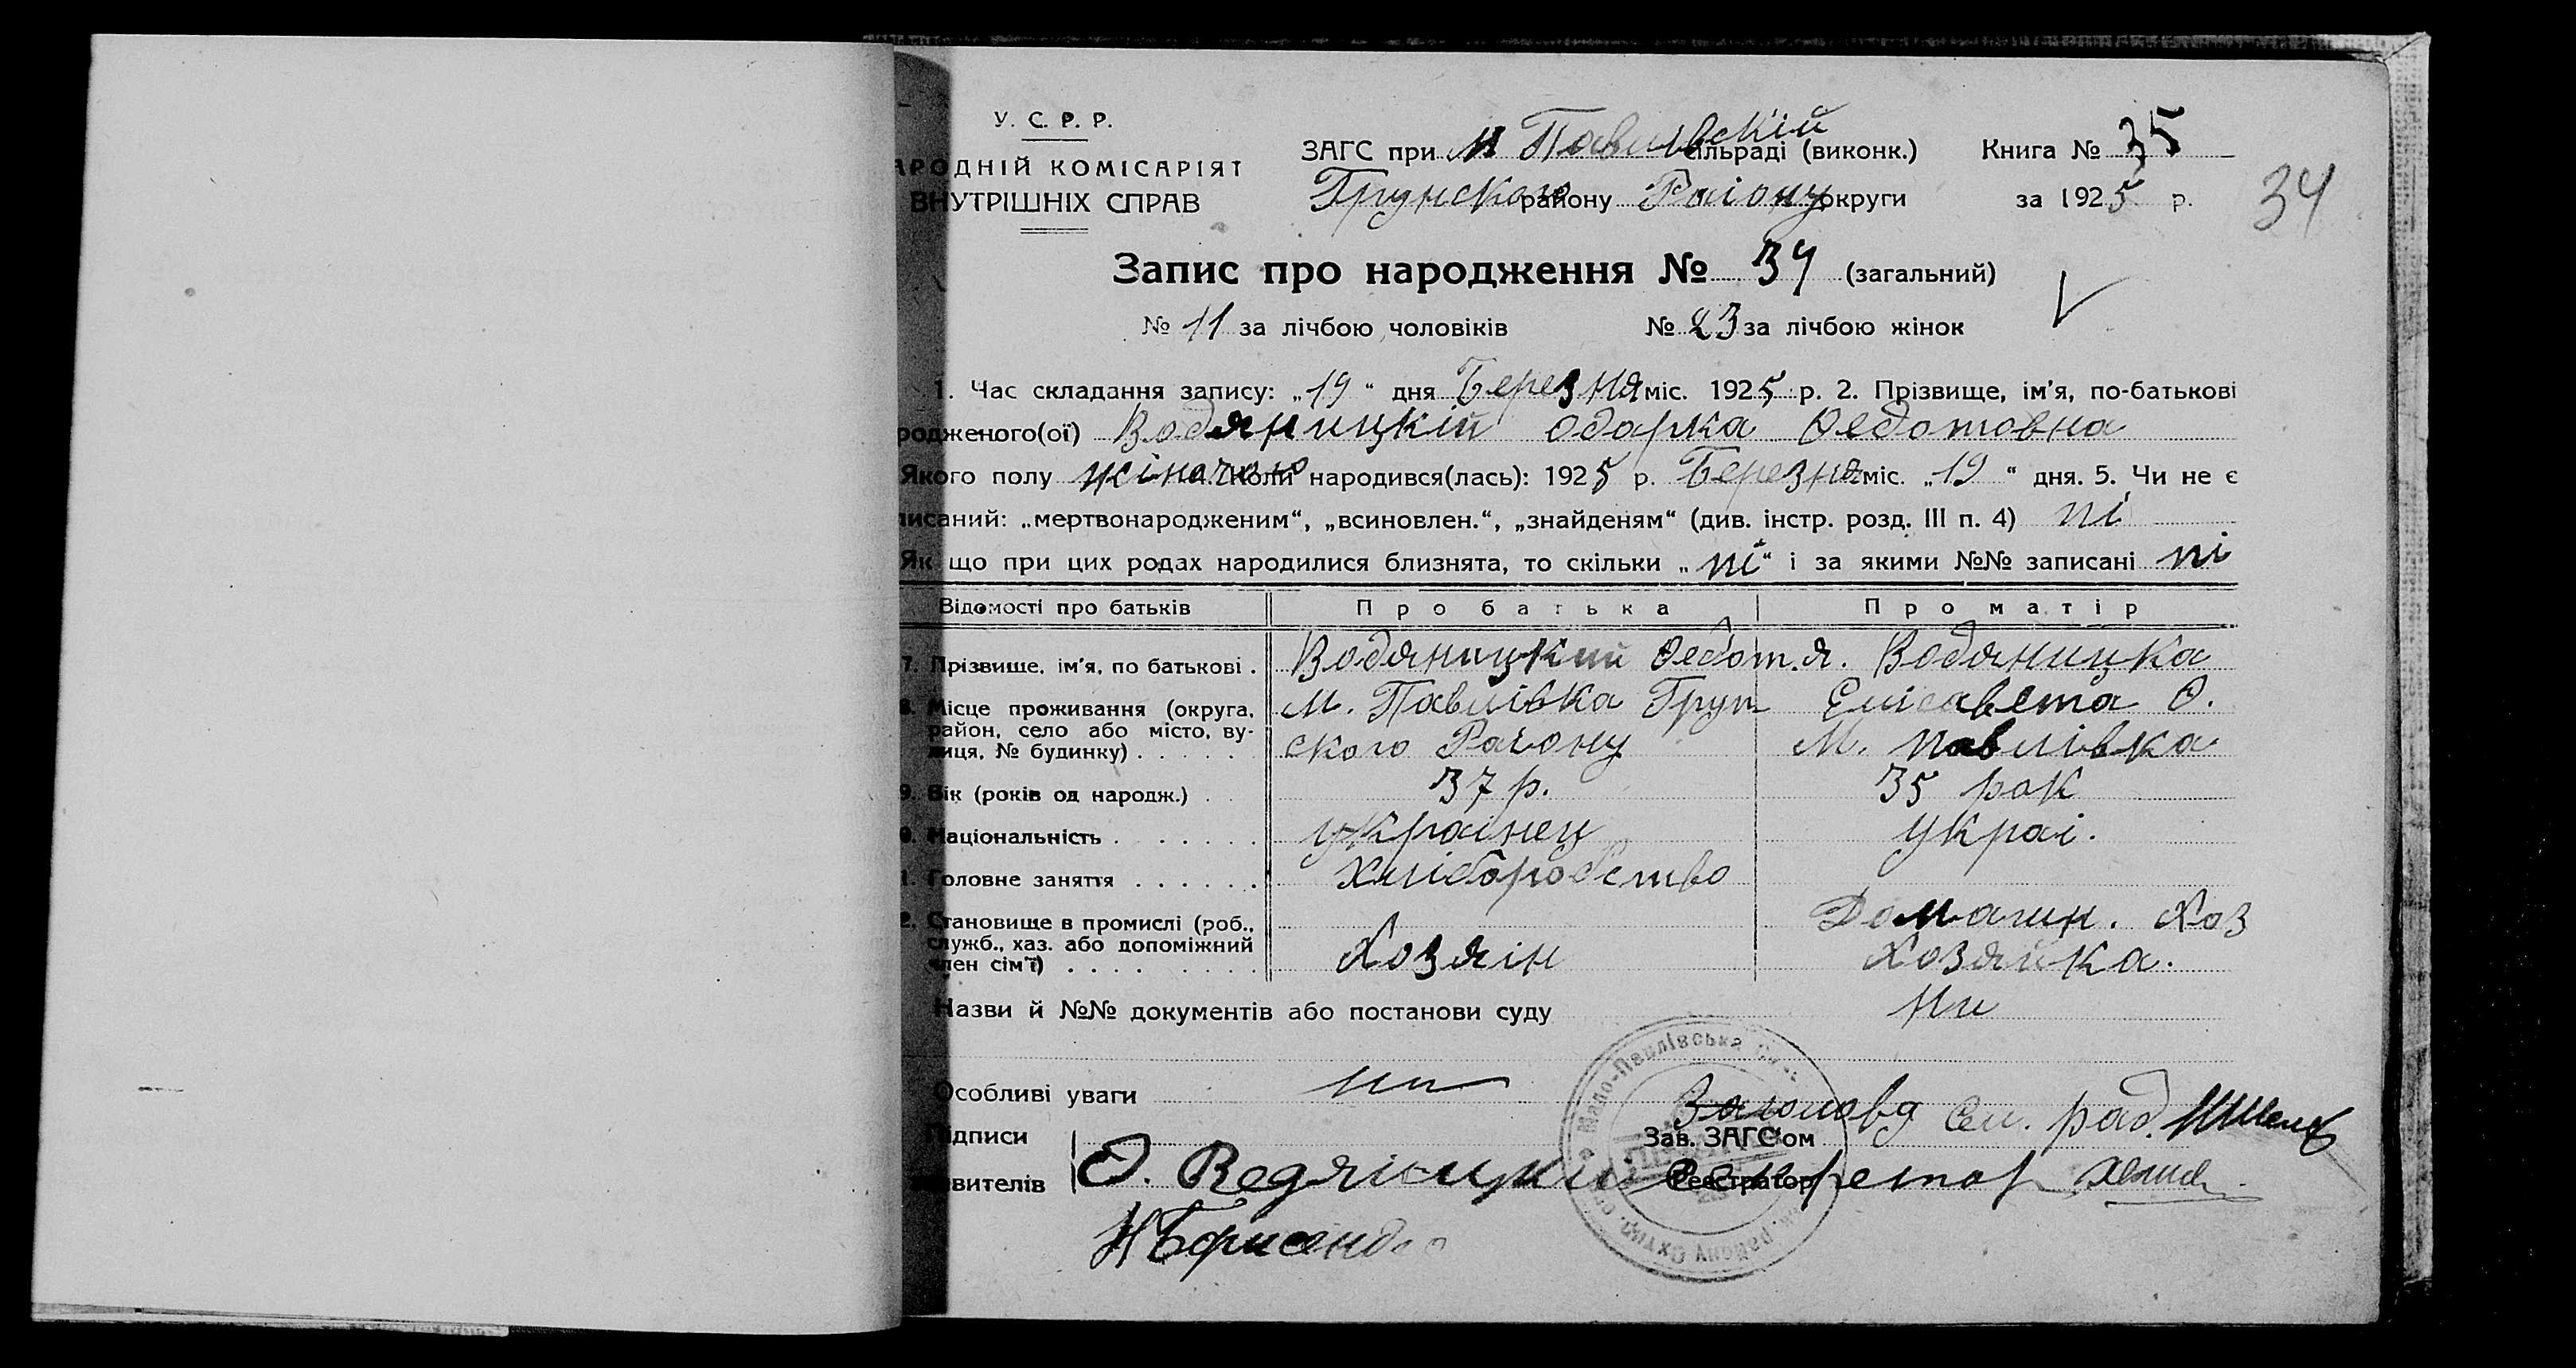 У. С. Р. Р.
АРОДНІЙ КОМІСАРІЯТ
ВНУТРІШНІХ СПРАВ
ЗАГС при М Павлівскій сільраді (виконк.)
Грунского району Раіону округи
Книга № 35
за 1925 р.
34
Запис про народження № 34 (загальний)
№ 11 за лічбою чоловіків № 23 за лічбою жінок
1. Час складання запису: „19" дня Березня міс. 1925 р. 2. Прізвище, ім'я, по-батькові
родженого(ої) Водяницкій Одарка Федотовна
Якого полу жіночого Коли народився(лась): 1925 р. Березня міс. „19" дня. 5. Чи не є
писаний: „мертвонародженим", „всиновлен.", „знайденям" (див. інстр. розд. III п. 4) ні
Як що при цих родах народилися близнята, то скільки „ні" і за якими №№ записані ні
Відомості про батьків Про батька Про матір
7. Прізвище, ім'я, по батькові . Водяницкий Федот. Я. Водяницка
8. Місце проживання (округа, М. Павлівка Грун Єлісавета Ф.
район, село або місто, ву-
лиця, № будинку) . . . . . ского Раіону М. Павлівка
9. Вік (років од народж.) . . 37 р. 35 рок
0. Національність . . . . . . . украінец Украі.
1. Головне заняття . . . . . . Хлібородство
2. Становище в промислі (роб., Домашн. Хоз
служб., хаз. або допоміжний
член сім'ї) . . . . . . . . Хозяін Хозяйка.
Назви й №№ документів або постанови суду Ни
Особливі уваги ни
Підписи
явителів
Зав. ЗАГС'ом
Голова Сел. рад.
Реєстратор
Секретар
Мало-Павлівська
району Охтир.